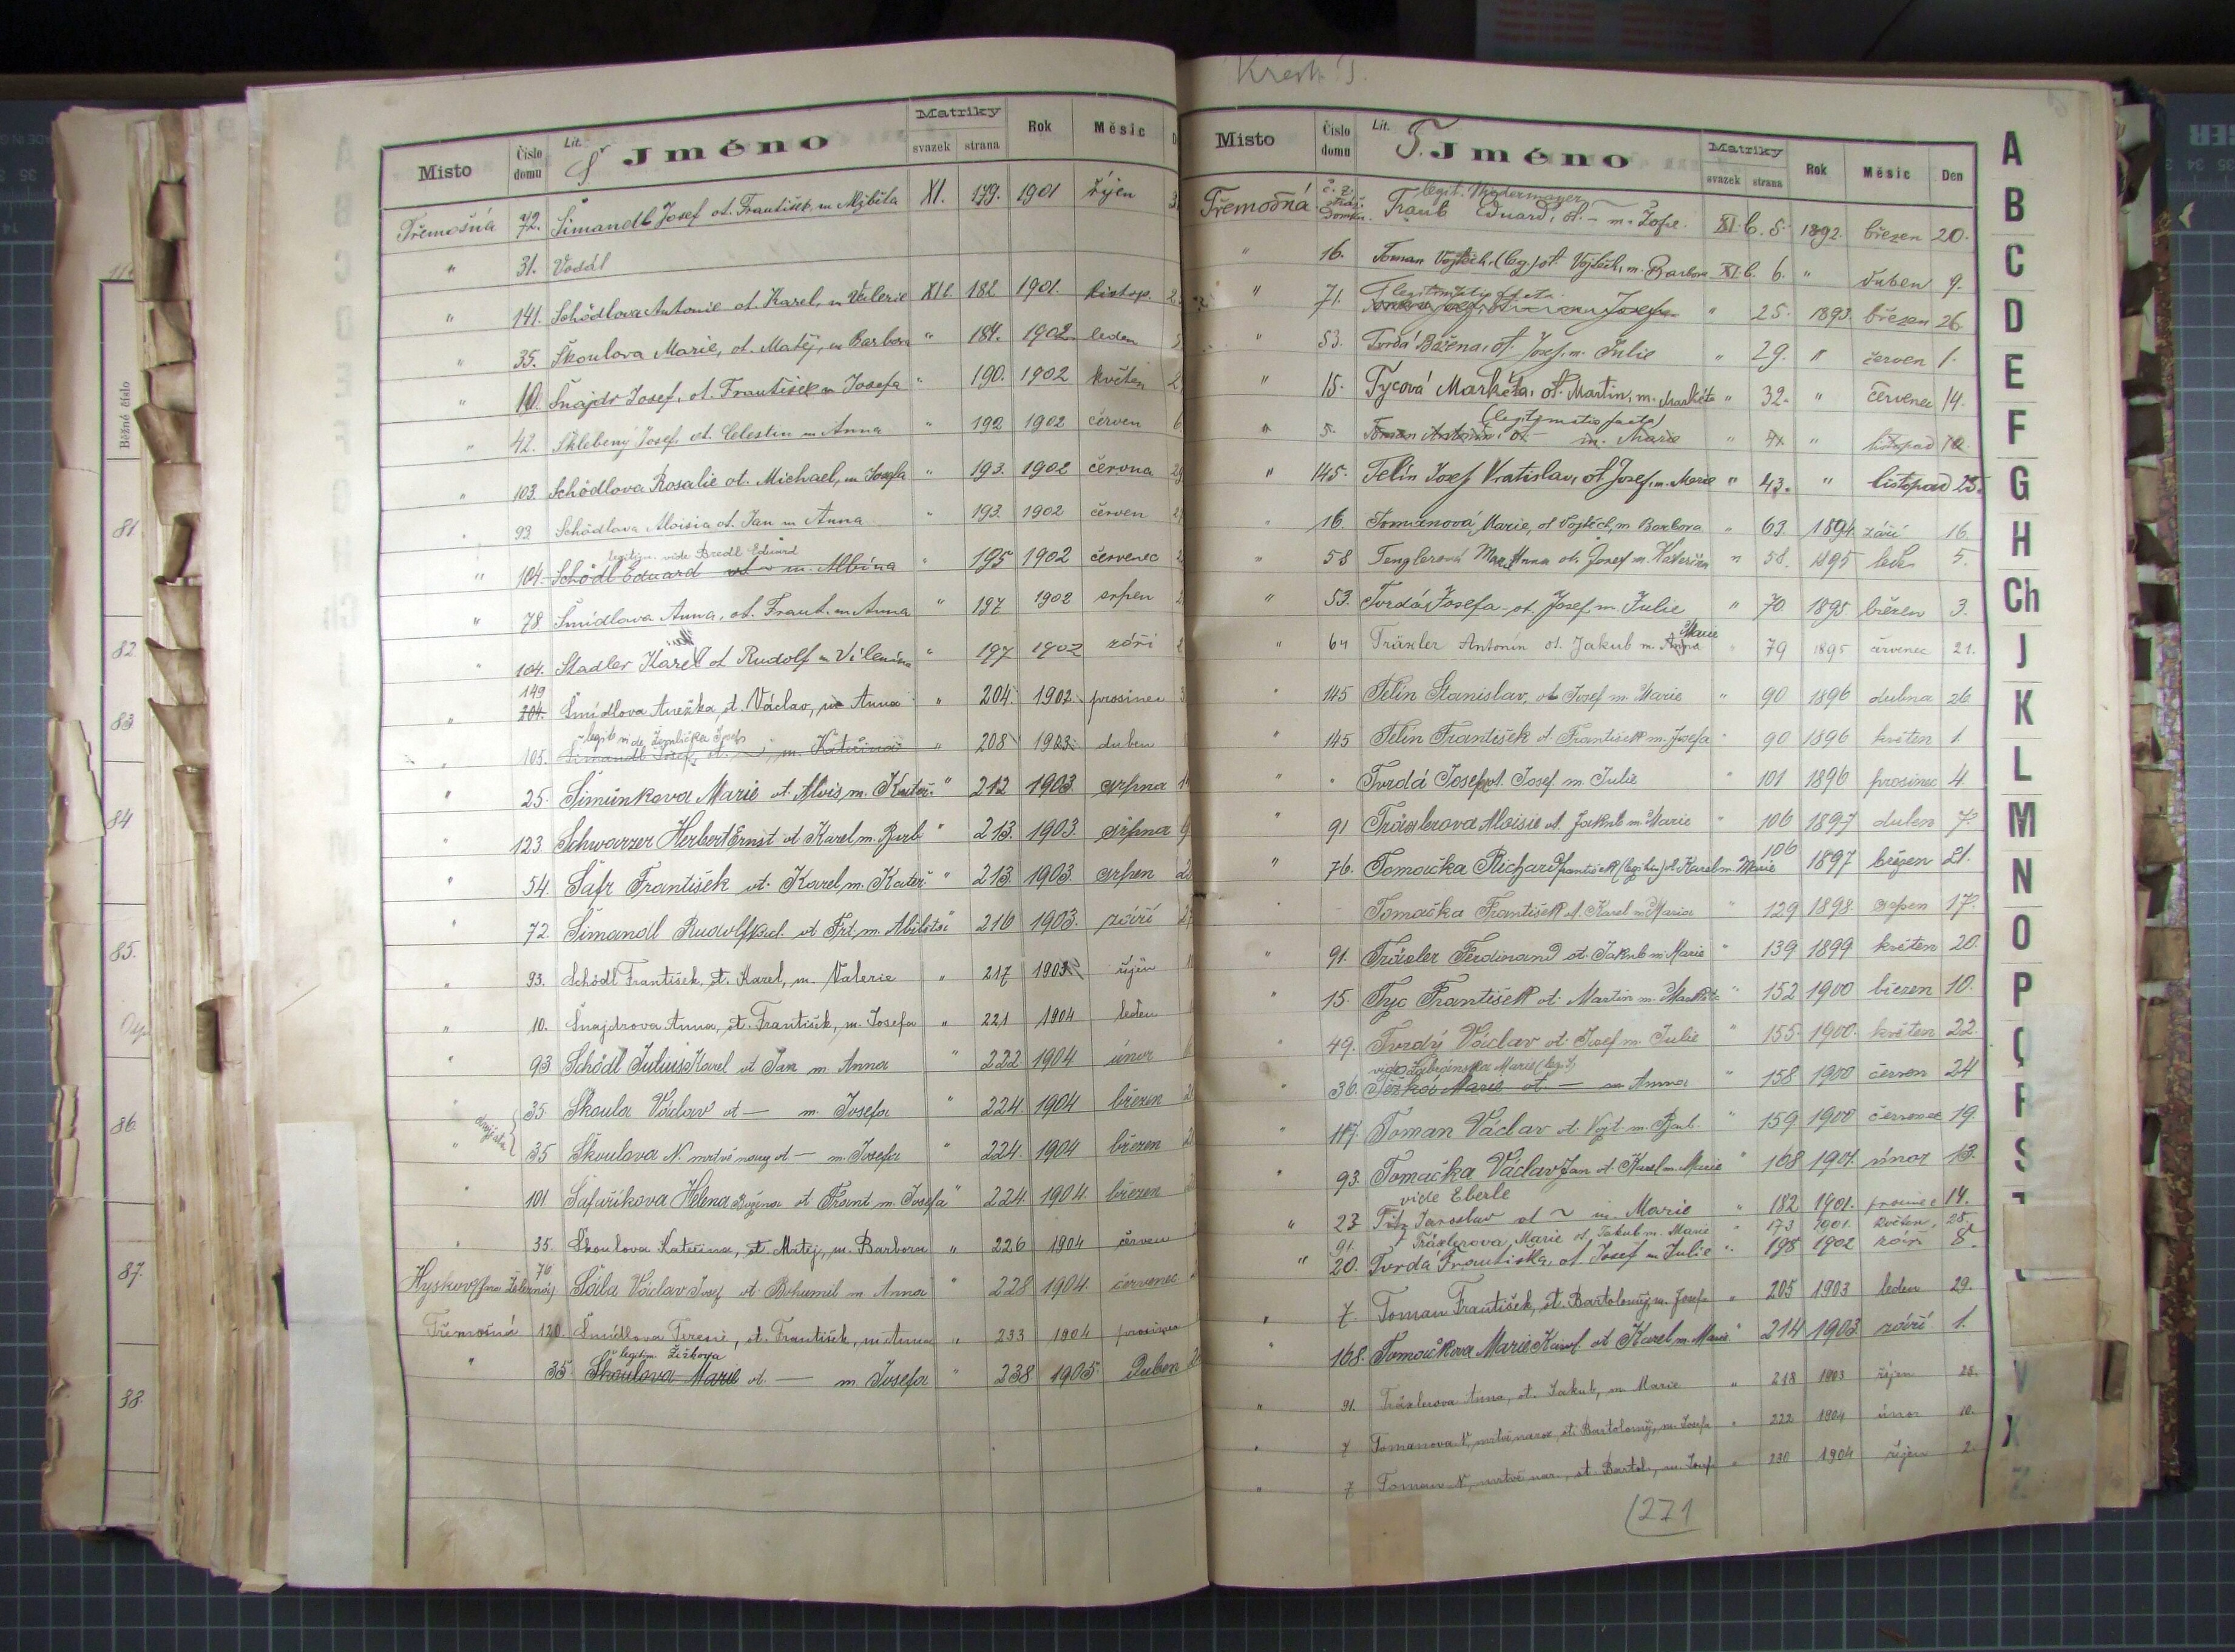 Lit. Š
Místo Číslo domu Jméno Matriky svazek strana Rok Měsíc
Třemošná 72. Šimandl Josef ot. František, m XI. 179. 1901 říjen
" 31. Vodál
" 141. Schödlova Antonie ot. Karel, m Valerie XII. 182 1901. listop.
" 35. Škoulova Marie, ot. Matěj, m Barbora " 184. 1902. leden
" 10. Šnajdr Josef, ot. František m Josefa " 190. 1902 květen
" 42. Šklebený Josef, ot. Celestin m Anna " 192 1902 červen
" 103 Schödlova Rosalie ot. Michael, m Josefa " 193. 1902 června
" 93 Schödlova Aloisia ot. Jan m Anna " 193. 1902 červen
legitim. vide Bredl Eduard
" 104. Schödl Eduard ot ~ m. Albína " 195 1902 červenec
" 78 Šmídlova Anna, ot. Frant. m Anna " 197 1902 srpen
" 104. Stadler Karel ot Rudolf m " 197 1902 září
149
" 204. Šmídlova Anežka, ot. Václav, m Anna " 204. 1902. prosinec
legit vide Josef
" 105. Šimandl Josef, ot. ~, m. Kateřina " 208 1903. duben
" 25. Šimůnkova Marie ot. Alois, m. Kateř. " 212 1903. srpna
" 123 Schwarzer Herbert Ernst ot Karel m. Barb " 213. 1903. srpna
" 54. Šafr František ot. Karel m. Kateř. " 213. 1903. srpen
" 72. Šimandl Rudolf ot Frt. m. " 216 1903. září
" 93. Schödl František, ot. Karel, m. Valerie " 217 1903 říjen
" 10. Šnajdrova Anna, ot. František, m. Josefa " 221 1904 leden
" 93 Schödl Julius Karel ot Jan m Anna " 222 1904 únor
" 35 Škoula Václav ot — m. Josefa " 224. 1904 březen
dvojčata
" 35 Škoulova N. mrtvě nový ot — m. Josefa " 224. 1904 březen
" 101 Šafaříkova Helena Božena ot Frant m. Josefa " 224 1904. březen
" 35. Škoulova Kateřina, ot. Matěj, m. Barbora " 226 1904 červen
76
Hyskov Šàila Václav Josef ot Bohumil m Anna " 228 1904. červenec
Třemošná 120 Šmídlova Terezie, ot. František, m Anna " 233 1904 prosinec
legitim. Žižkova
" 35 Škoulova Marie ot. — m Josefa " 238 1905. duben
Běžné číslo
81
82
83
84
85.
86
87.
88.
Křest. T.
Lit. T.
Místo Číslo domu Jméno Matriky svazek strana Rok Měsíc Den
legit. Niedermayer
Třemošná Traub Eduard, ot. — m. Žofie. XI. b. 5. 1892. březen 20.
" 16. Toman Vojtěch, (leg.) ot. Vojtěch, m. Barbora XI. b. 6. " duben 9.
legitimatio facta
" 71. Josefa " 25. 1893. březen 26
" 53. Tvrdá Božena, ot. Josef, m. Julie " 29. " červen 1.
" 15. Tycová Markéta, ot. Martin, m. Markéta " 32. " červenec 14.
(legitimatio facta)
" 5. Toman Antonín, ot. — m. Marie " 41 " listopad 12.
" 145. Telín Josef Vratislav, ot Josef, m. Marie " 43. " listopad 25.
" 16. Tomanová Marie, ot Vojtěch, m Barbora " 63. 1894. září 16.
" 58 Tenglerová Marie Anna ot. Josef m. Kateřina " 58. 1895 led. 5.
" 53. Tvrdá Josefa ot. Josef m. Julie " 70. 1895. březen 3.
Marie
" 64 Träxler Antonín ot. Jakub m. Anna " 79 1895 červenec 21.
" 145 Telín Stanislav, ot Josef m. Marie " 90 1896 dubna 26
" 145 Telín František ot. František m. Josefa " 90 1896 květen 1
" " Tvrdá Josef ot. Josef m. Julie " 101 1896 prosinec 4
" 91 Träxlerova Aloisie ot. Jakub m. Marie " 106 1897 duben 7.
" 76. Tomaička Richard František (legitim) ot Karel m. Marie 106 1897 březen 21.
" Tomaička František ot. Karel m. Marie " 129 1898. srpen 17.
" 91. Träxler Ferdinand ot. Jakub m Marie " 139 1899 květen 20.
" 15. Tyc František ot. Martin m. Markéta " 152 1900 březen 10.
" 49. Tvrdý Václav ot. Josef m. Julie " 155. 1900. květen 22.
vide Marie (leg.)
" 36. Marie ot — m Anna " 158 1900 červen 24
" 117. Toman Václav ot. Vojt. m. Barb. " 159. 1900 červenec 19.
" 93. Tomaička Václav Jan ot Karel m. Marie " 168 1901. únor 13.
vide Eberle
" 23 Titz Jaroslav ot ~ m. Marie " 182 1901. prosinec 14.
91. Träxlerova Marie ot. Jakub m. Marie " 173 1901. květen 28
" 20. Tvrdá Františka, ot. Josef m Julie " 198 1902 září 8.
" 7 Toman František, ot. Bartoloměj, m. Josefa " 205 1903 leden 29.
" 168. Tomaičkova Marie ot Karel m. Marie " 214 1903. září 1.
" 91. Träxlerova Anna, ot. Jakub, m. Marie " 218 1903 říjen 28.
" 7 Tomanova N. mrtvě naroz., ot. Bartoloměj, m. Josefa " 222 1904 únor 10.
" 7 Toman N., mrtvě nar., ot. Bartol., m. Josefa " 230 1904 říjen 2.
271
A
B
C
D
E
F
G
H
Ch
J
K
L
M
N
O
P
R
S
V
X
Z